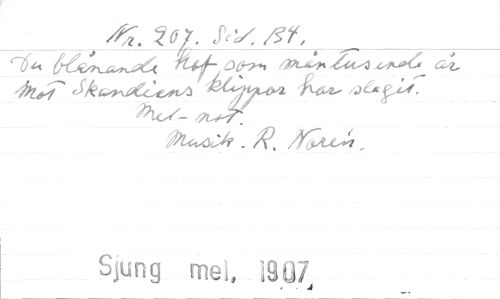 Nr. 207. Sid. 134.
Du blånande haf som måntusende år
mot Skandiens klippor har slagit.
Mel-not.
Musik. R. Norén.
Sjung mel, 1907